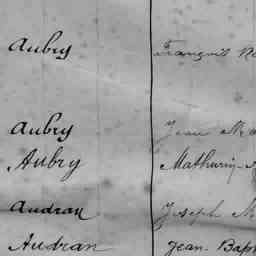 Aubry François
Aubry Jean Ma
Aubry Mathurin
Audran Joseph M
Audran Jean-Bap